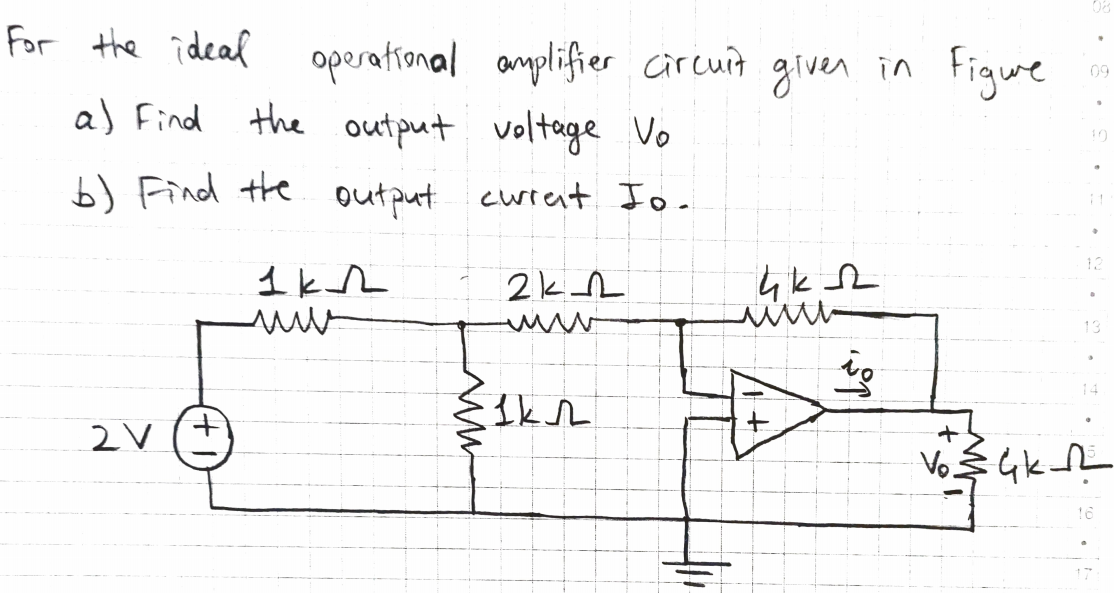 For the ideal operational amplifier circuit given in Figure
a) Find the output voltage Vo
b) Find the output current Io.
1kΩ 2kΩ 4kΩ
io
1kΩ
2V + −
− +
+ Vo − 4kΩ
08
09
10
11
12
13
14
15
16
17